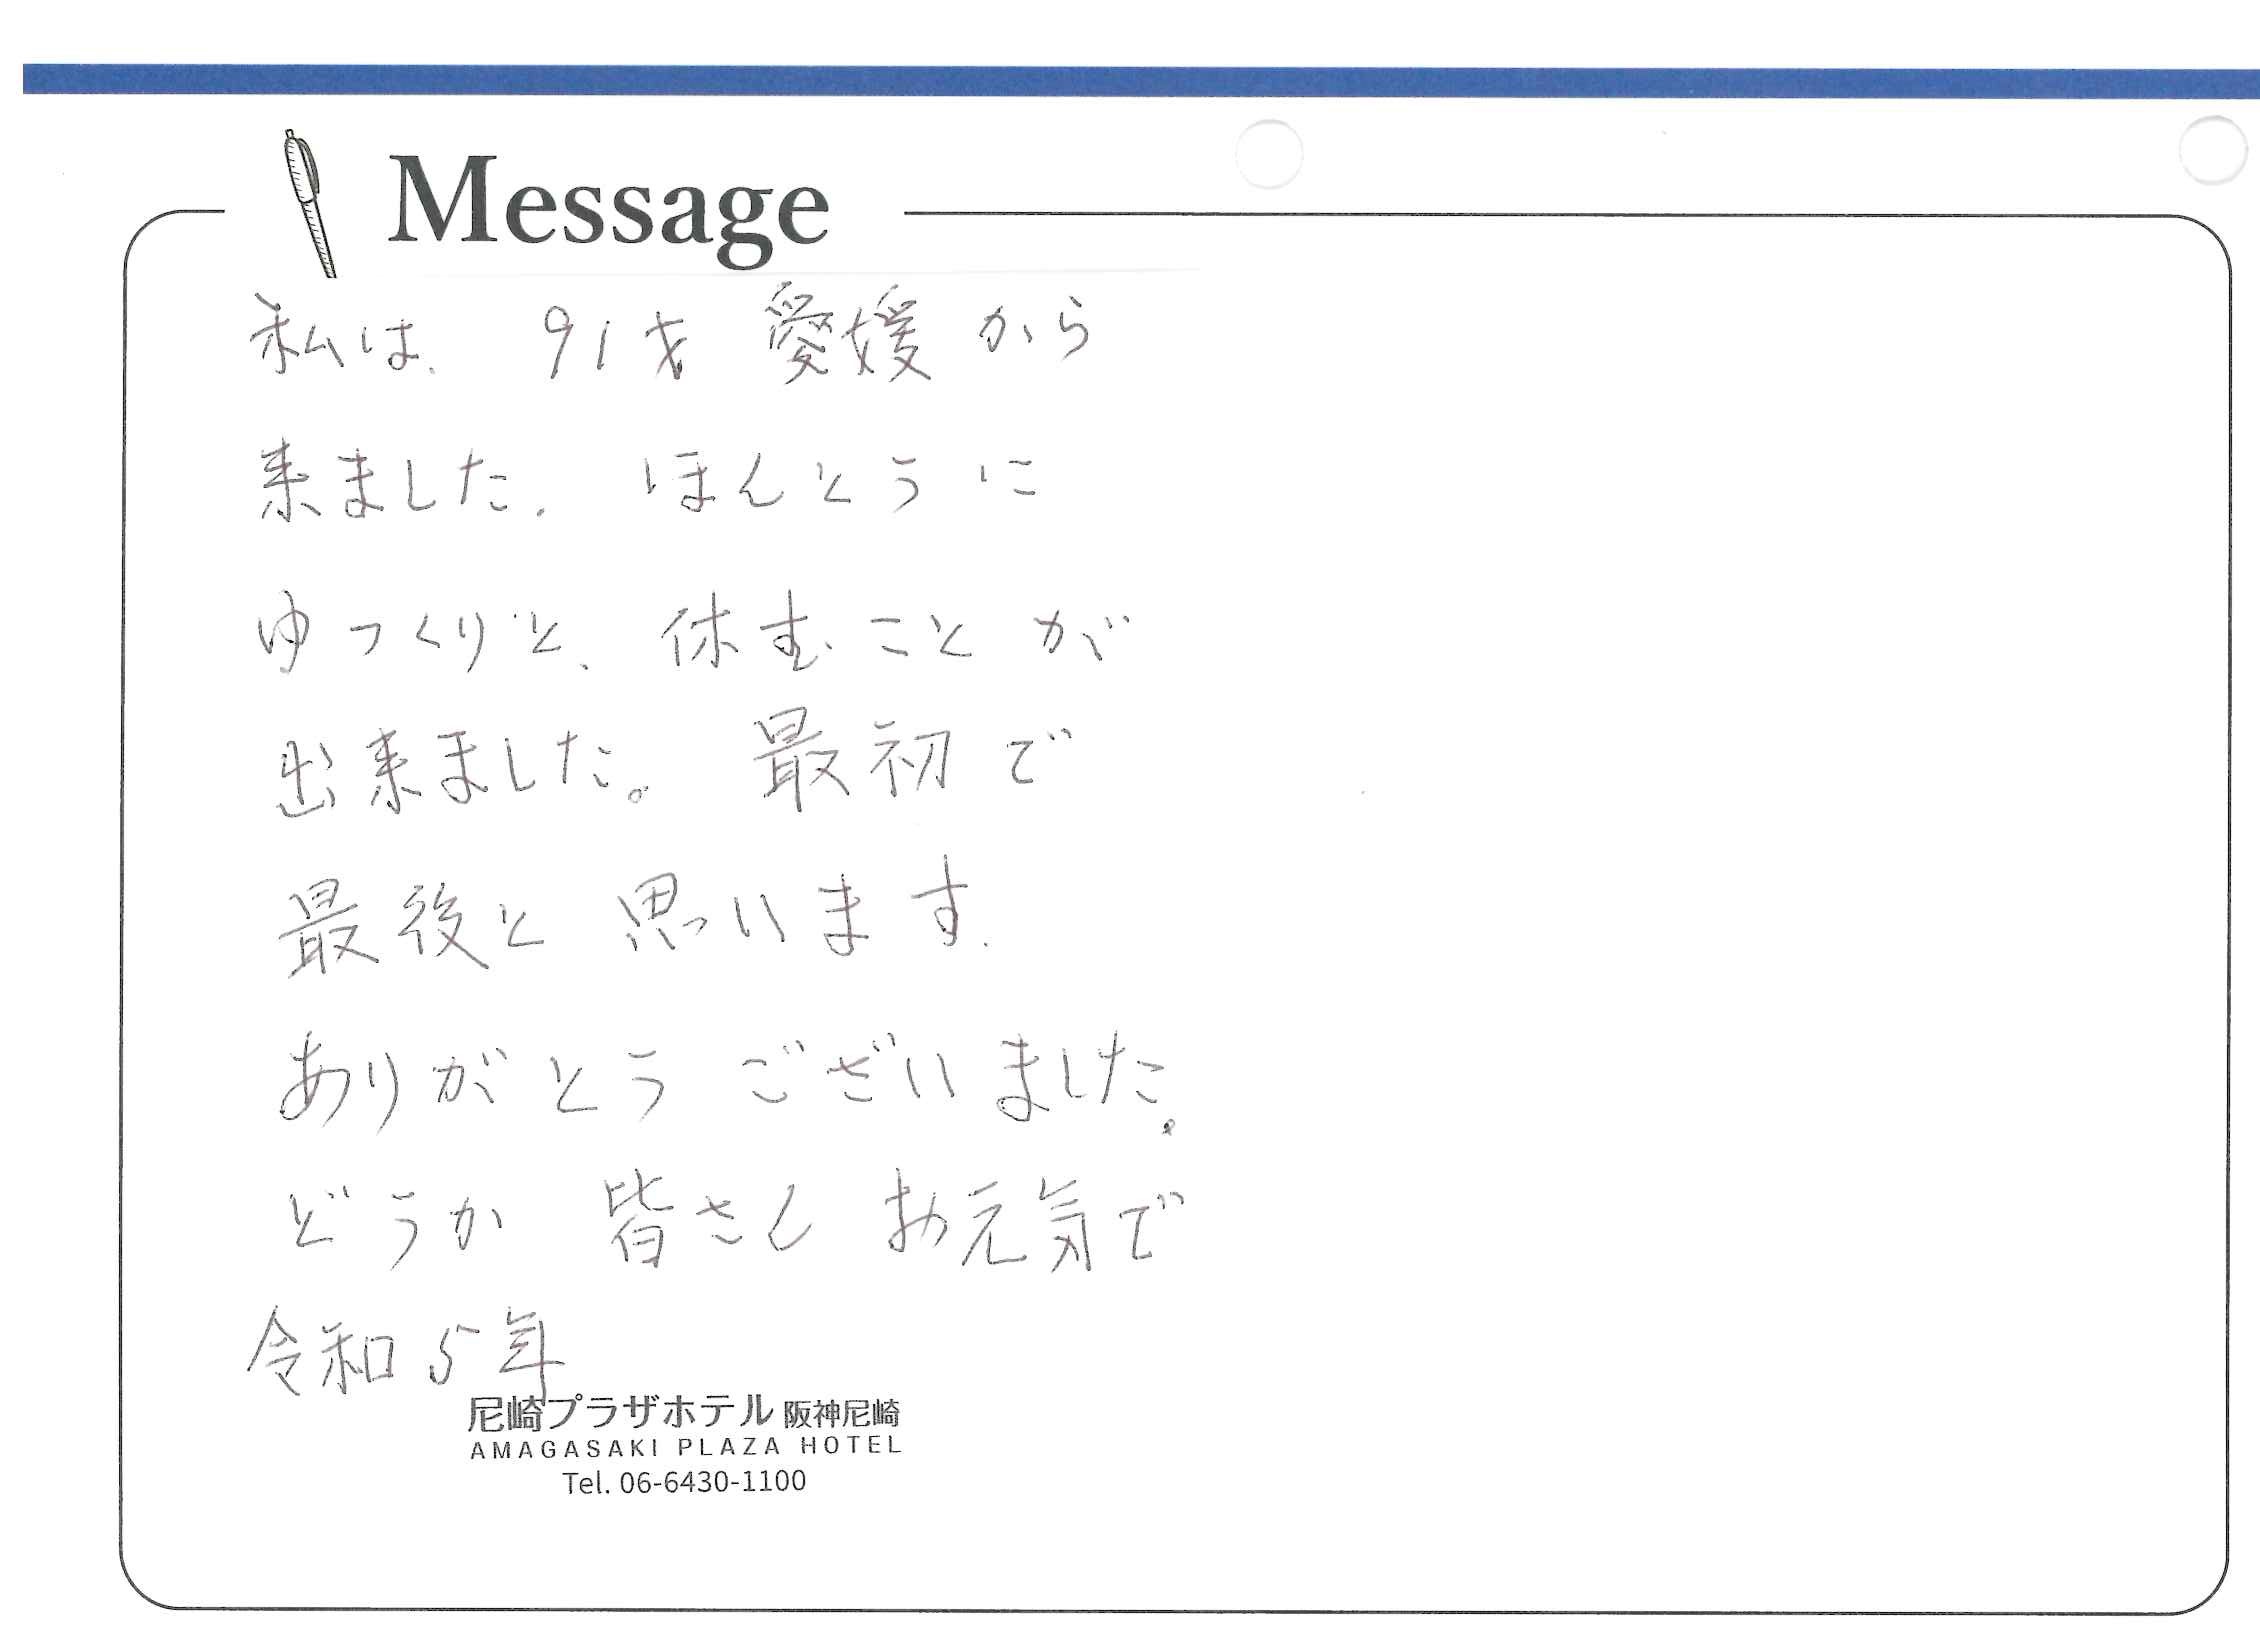 Message
私は、91才 愛媛から
来ました。ほんとうに
ゆっくりと、休むことが
出来ました。最初で
最後と思います。
ありがとうございました。
どうか 皆さん お元気で
令和5年
尼崎プラザホテル 阪神尼崎
AMAGASAKI PLAZA HOTEL
Tel. 06-6430-1100